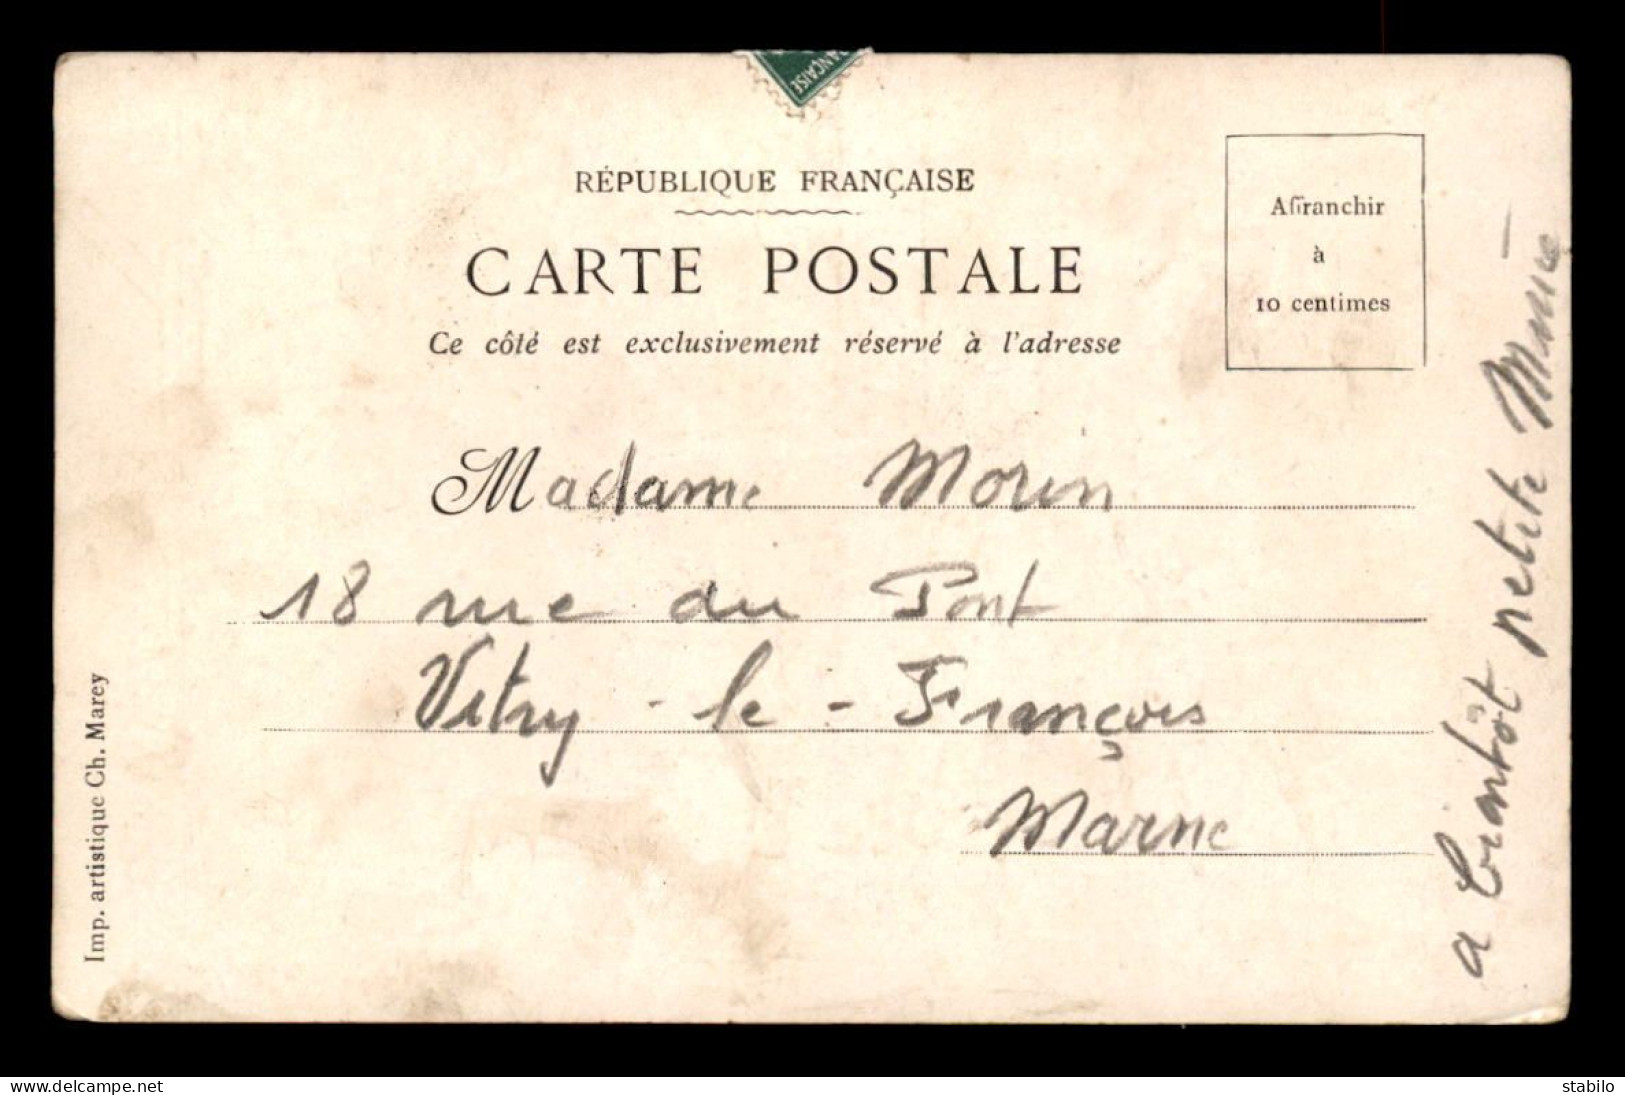 RANÇAISE
RÉPUBLIQUE FRANÇAISE
CARTE POSTALE
Ce côté est exclusivement réservé à l'adresse
Affranchir
à
10 centimes
Madame Morin
18 rue du Pont
Vitry-le-François
Marne
a bientôt petite Mimie
Imp. artistique Ch. Marey
www.delcampe.net
stabilo